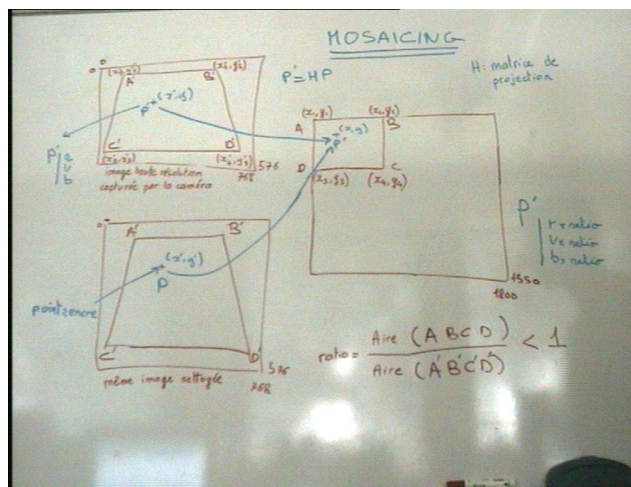 MOSAICING
P' = HP
H: matrice de
projection
A' B'
P' (x', y')
C' D'
576
768
image haute résolution
capturée par la caméra
P'
r
v
b
(x, y)
A B
P'
D C
(x3, y3) (x4, y4)
1350
1800
P'
r × ratio
v × ratio
b × ratio
A' B'
(x', y')
P
point encre
C' D'
576
768
même image nettoyée
ratio = Aire (A B C D) / Aire (A' B' C' D') < 1